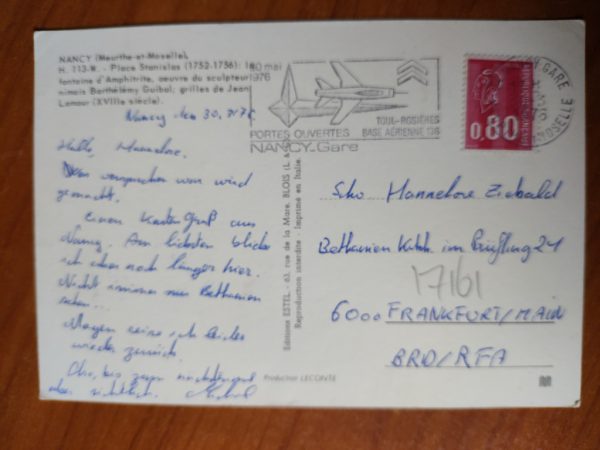 NANCY (Meurthe-et-Moselle),
H. 113-N. - Place Stanislas (1752-1756): la
fontaine d'Amphitrite, oeuvre du sculpteur
nimois Barthélémy Guibal; grilles de Jean
Lamour (XVIIIe siècle).
Nancy den 30.
Hallo, Hannelore.
versprochen war wird
gemacht.
Einen Kartengruß aus
Nancy. Am liebsten bliebe
ich noch länger hier.
Nicht immer nur Bethanien
sehen...
Morgen reise ich leider
wieder zurück.
bis zum nächstenmal
Editions ESTEL - 63, rue de la Mare. BLOIS
Reproduction interdite - Imprimé en Italie.
Producteur LECONTE
30 mai
1976
TOUL-ROSIÈRES
PORTES OUVERTES BASE AÉRIENNE 136
NANCY-Gare
0,80
GARE
MOSELLE
Hannelore
Bethanien Kkh. im Prüfling 21
17161
6000 FRANKFURT/MAIN
BRD/RFA